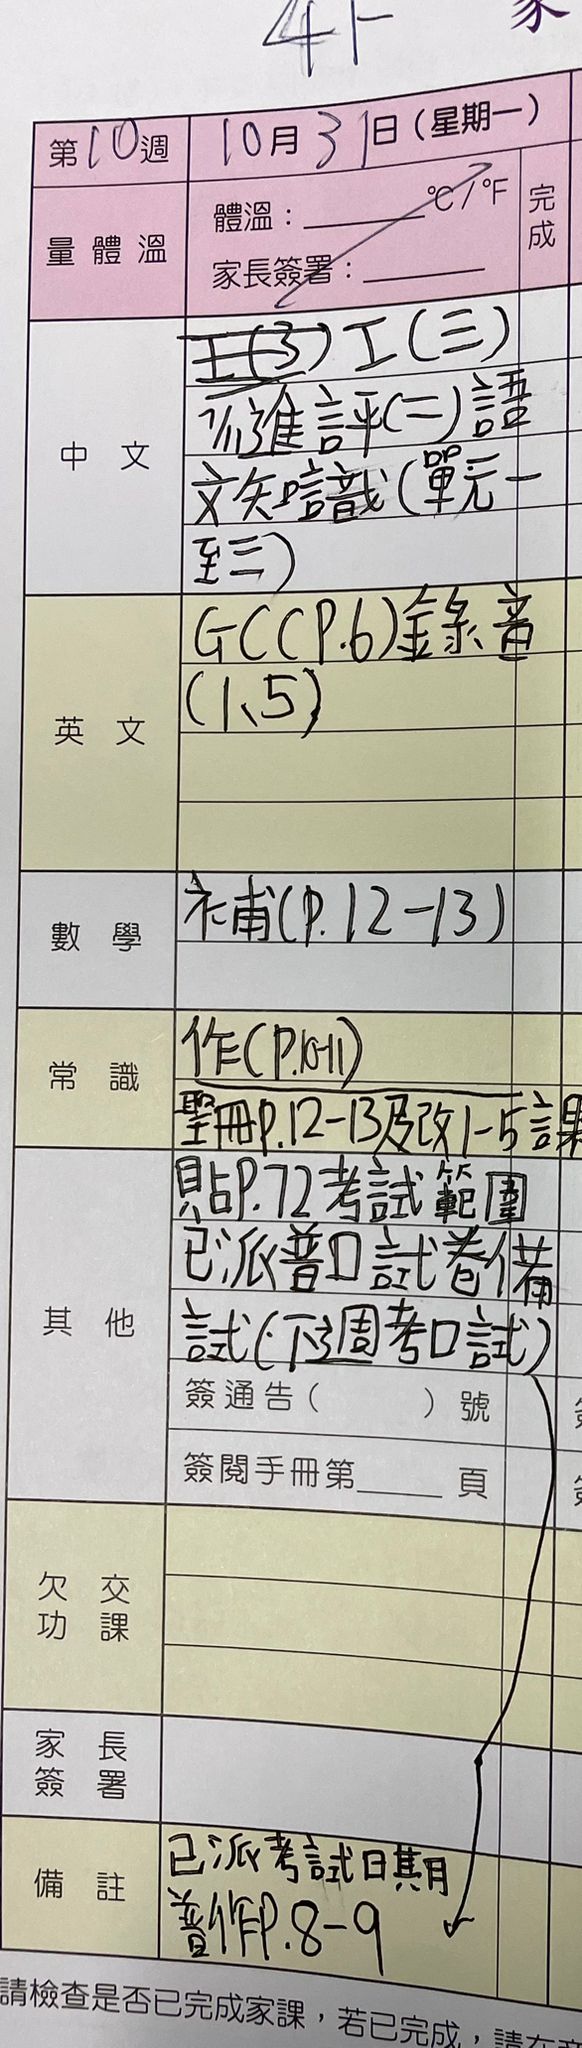 家
第10週 10月31日(星期一)
量體溫 體溫：______℃/℉ 完成
家長簽署：______
中文 工(3) 工(三)
進評(二)語
文知識(單元一
至三)
英文 GC(P.6)錄音
(1、5)
數學 補(P.12-13)
常識 作(P.10-11)
聖冊P.12-13及改1-5課
其他 貼P.72考試範圍
已派普口試卷備
試(下週考口試)
簽通告(　　　)號
簽閱手冊第____頁
欠交功課
家長簽署
備註 已派考試日期
普作P.8-9
請檢查是否已完成家課，若已完成，請在